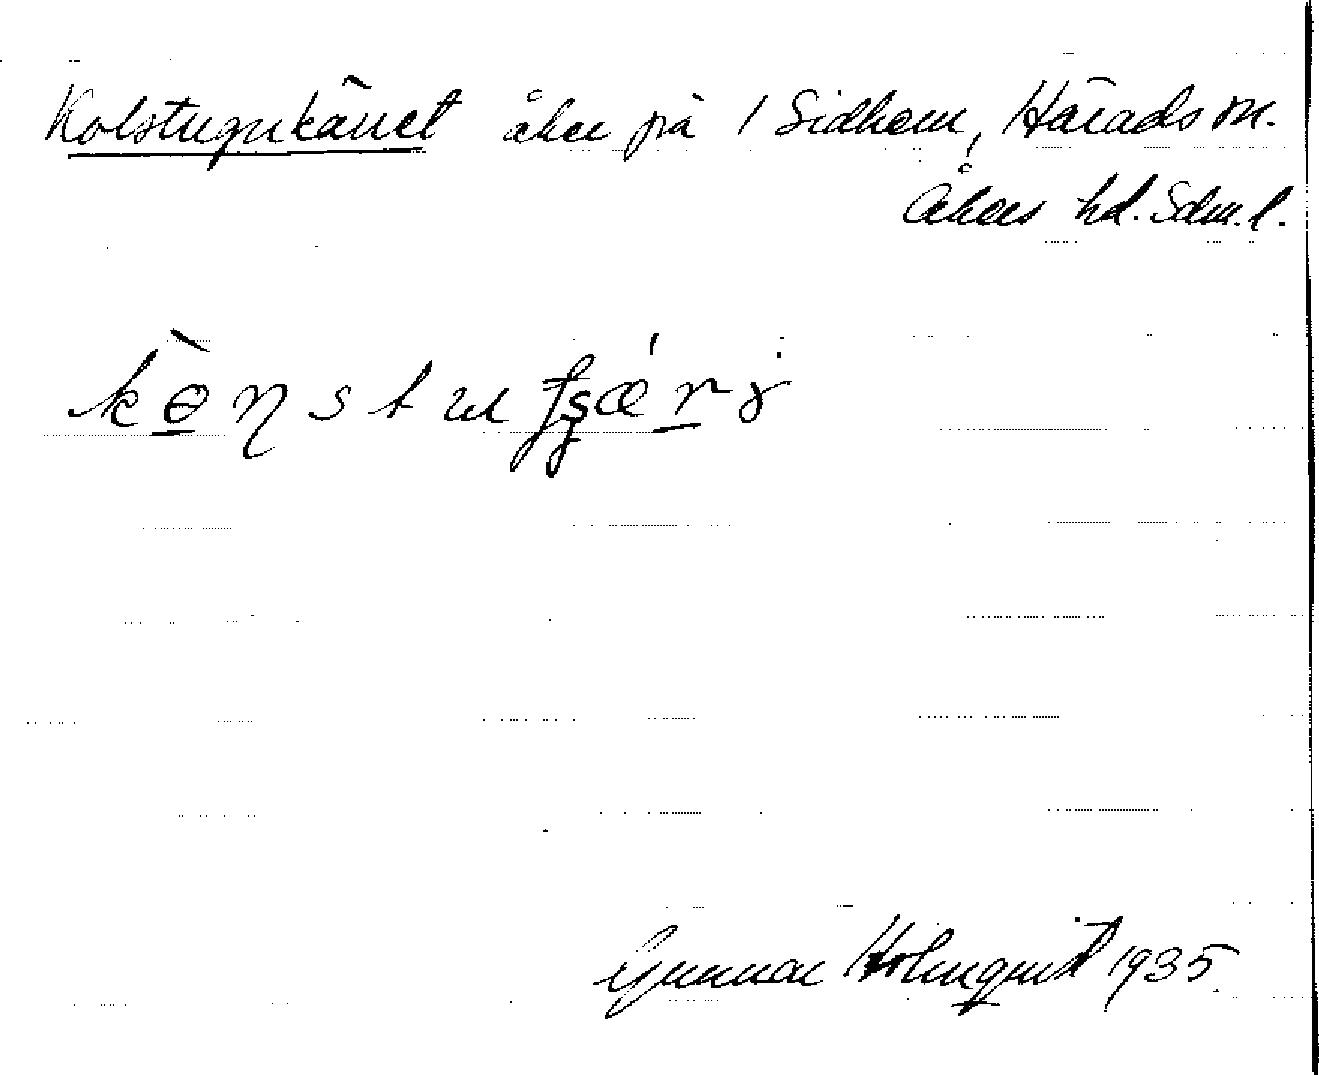 Kolstugukärret åker på 1 Sidhem, Härads sn.
Åkers hd. Sdm.l.
Gunnar Holmqvist 1935